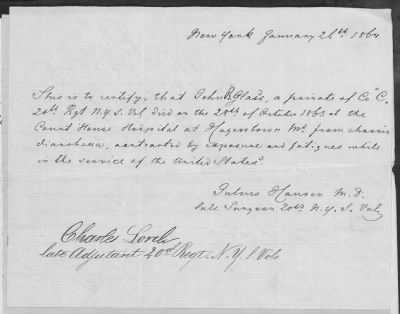 New York January 26th 1864
This is to certify, that John B. Glass, a private of Co "C,
20th Rgt N.Y.S. Vol. Died on the 28th of October 1863 at the
Court House Hospital at Hagerstown Md. from chronic
diarrhoea, contracted by exposure and fatigues while
in the service of the United States.
Julius Hausen M.D.
late Surgeon 20th N.Y.S. Vols
Charles Lorch
late Adjutant 20th Regt. N.Y S Vols